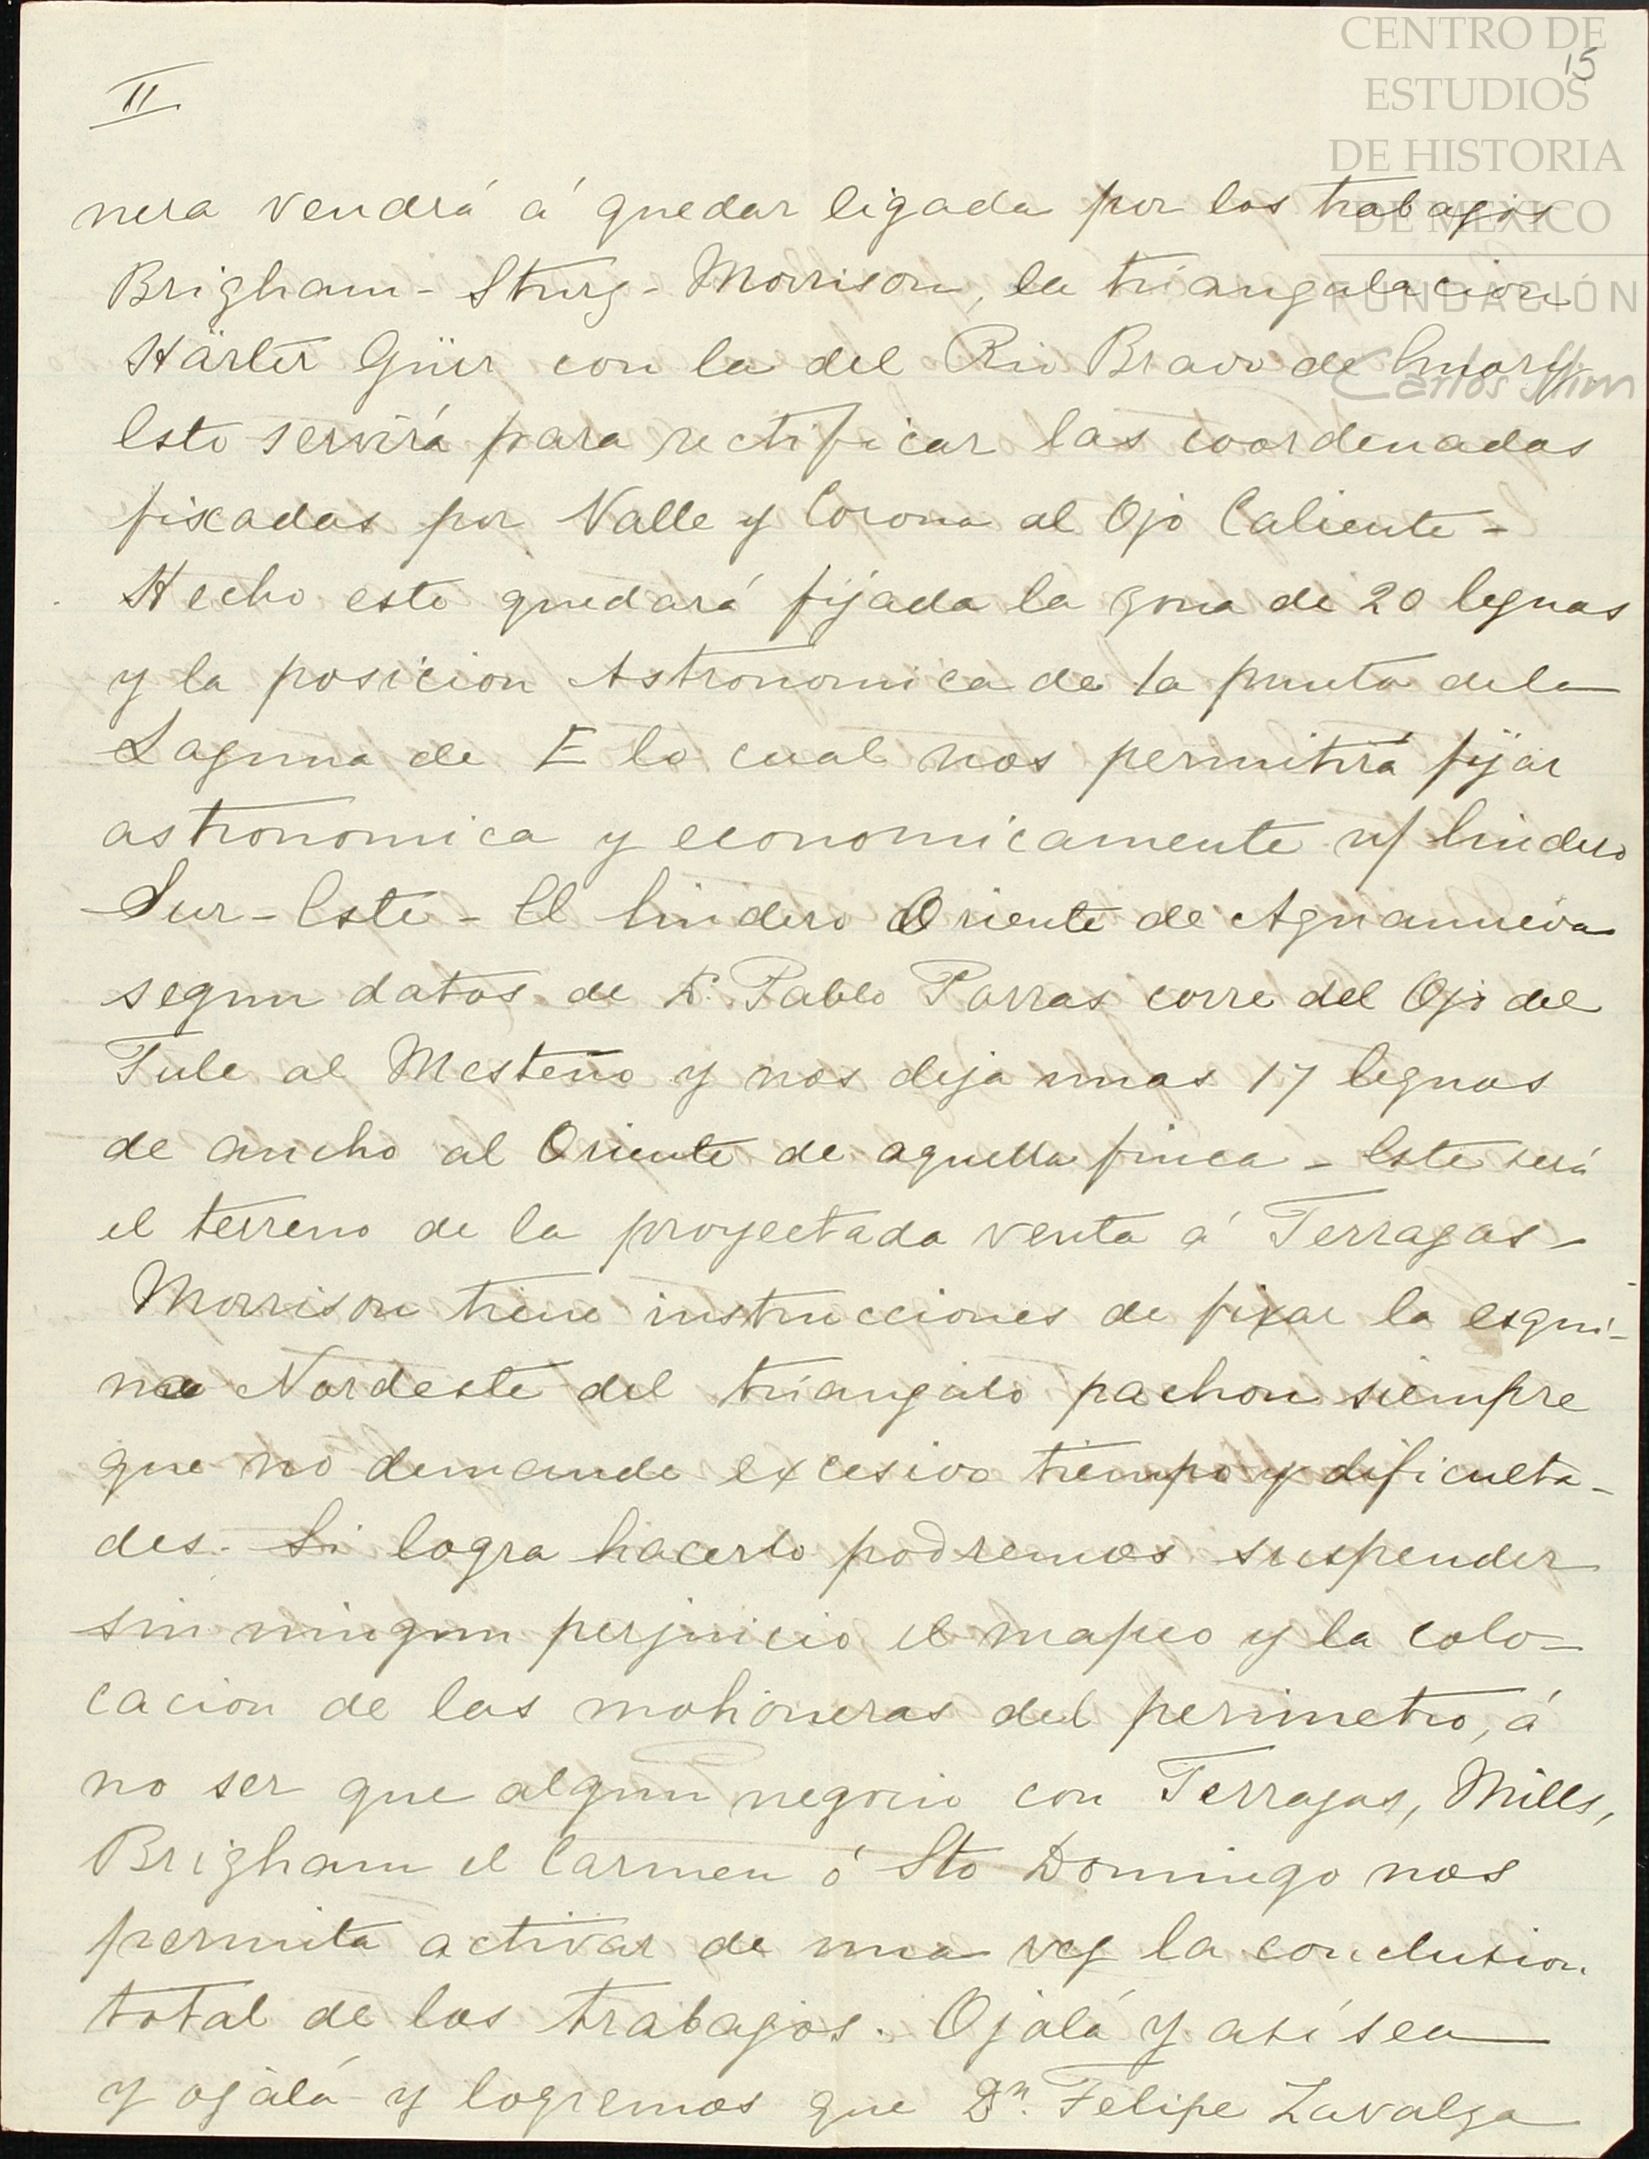 CENTRO DE
ESTUDIOS
DE HISTORIA
DE MÉXICO
FUNDACIÓN
Carlos Slim
15
II.
nera vendrá á quedar ligada por los trabajos
Brigham - Sturg - Morrison, la triangulacion
Härter Güer con la del Rio Bravo de Emory
Esto servirá para rectificar las coordenadas
fixadas por Valle y Corona al Ojo Caliente -
Hecho esto quedará fijada la zona de 20 leguas
y la posicion Astronomica de la punta dela
Laguna de E lo cual nos permitirá fijar
astronomica y economicamente n/ lindero
Sur-Este - El lindero Oriente de Aguanueva
segun datos de D. Pablo Parras corre del Ojo del
Tule al Mesteño y nos deja unas 17 leguas
de ancho al Oriente de aquella finca - Este será
el terreno de la proyectada venta á Terrazas -
Morrison tiene instrucciones de fixar la esqui-
na Nordeste del triangulo pachon siempre
que no demande excesivo tiempo y dificulta-
des. Si logra hacerlo podremos suspender
sin ningun perjuicio el mapeo y la colo-
cacion de las mohoneras del perimetro, á
no ser que algun negocio con Terrazas, Mills,
Brigham el Carmen ó Sto Domingo nos
permita activar de una vez la conclusion
total de los trabajos. Ojalá y así sea
y ojalá y logremos que Dn. Felipe Zavalza